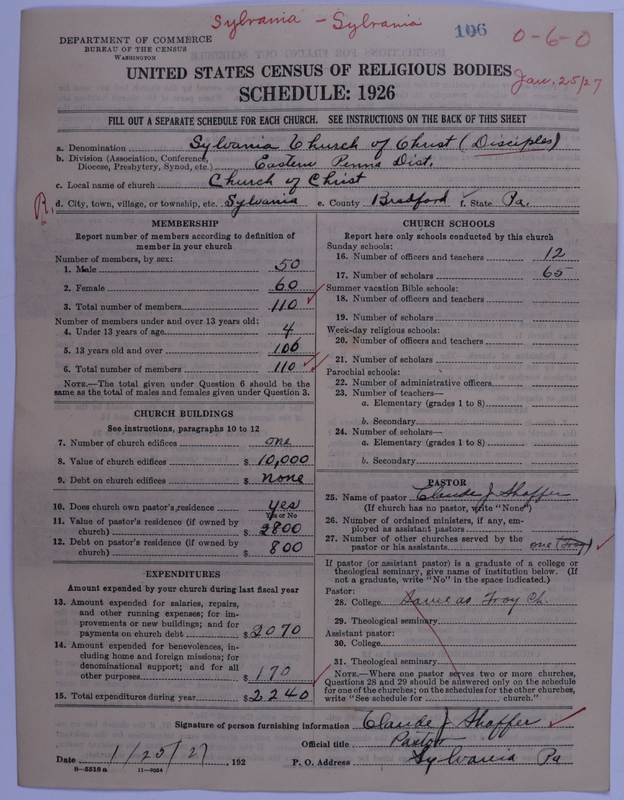 Sylvania - Sylvania
106
0-6-0
Jan. 25/27
DEPARTMENT OF COMMERCE
BUREAU OF THE CENSUS
WASHINGTON
UNITED STATES CENSUS OF RELIGIOUS BODIES
SCHEDULE: 1926
FILL OUT A SEPARATE SCHEDULE FOR EACH CHURCH. SEE INSTRUCTIONS ON THE BACK OF THIS SHEET
a. Denomination Sylvania Church of Christ (Disciples)
b. Division (Association, Conference, Diocese, Presbytery, Synod, etc.) Eastern Penna Dist.
c. Local name of church Church of Christ
R. d. City, town, village, or township, etc. Sylvania e. County Bradford f. State Pa.
MEMBERSHIP
Report number of members according to definition of
member in your church
Number of members, by sex:
1. Male 50
2. Female 60
3. Total number of members 110
Number of members under and over 13 years old:
4. Under 13 years of age 4
5. 13 years old and over 106
6. Total number of members 110
NOTE.—The total given under Question 6 should be the
same as the total of males and females given under Question 3.
CHURCH BUILDINGS
See instructions, paragraphs 10 to 12
7. Number of church edifices one
8. Value of church edifices $ 10,000
9. Debt on church edifices $ none
10. Does church own pastor's residence yes
Yes or No
11. Value of pastor's residence (if owned by
church) $ 2800
12. Debt on pastor's residence (if owned by
church) $ 800
EXPENDITURES
Amount expended by your church during last fiscal year
13. Amount expended for salaries, repairs,
and other running expenses; for im-
provements or new buildings; and for
payments on church debt $ 2070
14. Amount expended for benevolences, in-
cluding home and foreign missions; for
denominational support; and for all
other purposes $ 170
15. Total expenditures during year $ 2240
CHURCH SCHOOLS
Report here only schools conducted by this church
Sunday schools:
16. Number of officers and teachers 12
17. Number of scholars 65
Summer vacation Bible schools:
18. Number of officers and teachers
19. Number of scholars
Week-day religious schools:
20. Number of officers and teachers
21. Number of scholars
Parochial schools:
22. Number of administrative officers
23. Number of teachers—
a. Elementary (grades 1 to 8)
b. Secondary
24. Number of scholars—
a. Elementary (grades 1 to 8)
b. Secondary
PASTOR
25. Name of pastor Claude J. Shaffer
(If church has no pastor, write "None")
26. Number of ordained ministers, if any, em-
ployed as assistant pastors
27. Number of other churches served by the
pastor or his assistants one (Troy)
If pastor (or assistant pastor) is a graduate of a college or
theological seminary, give name of institution below. (If
not a graduate, write "No" in the space indicated.)
Pastor:
28. College Same as Troy Ch.
29. Theological seminary
Assistant pastor:
30. College
31. Theological seminary
NOTE.—Where one pastor serves two or more churches,
Questions 28 and 29 should be answered only on the schedule
for one of the churches; on the schedules for the other churches,
write "See schedule for church."
Signature of person furnishing information Claude J. Shaffer
Official title Pastor
Date 1/25/27, 192
P. O. Address Sylvania Pa
8—5518 a 11—9054